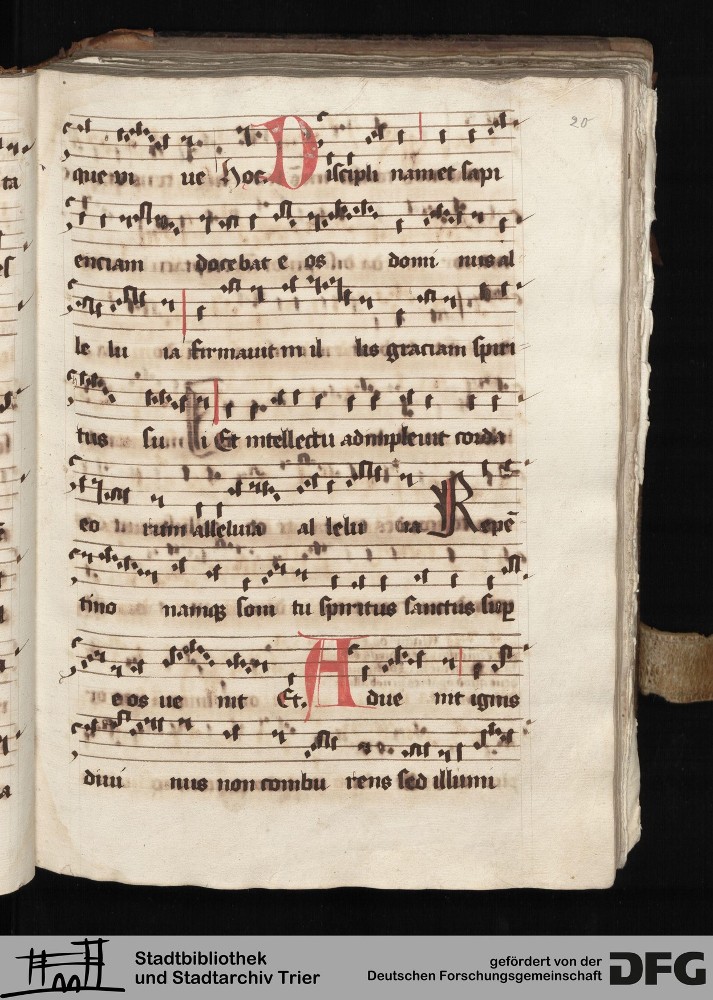 20
que vi ue Hoc. Discipli namet sapi
enciam docebat e os domi nus al
le lu ia firmauit in il lis graciam spiri
tus su i Et intellectu adimpleuit corda
eo rum alleluia al lelu ia Repē
tino namqꝫ soni tu spiritus sanctus suꝑ
eos ue nit Et. Adue nit ignis
diui nus non combu rens sed illumi
Stadtbibliothek
und Stadtarchiv Trier
gefördert von der
Deutschen Forschungsgemeinschaft
DFG